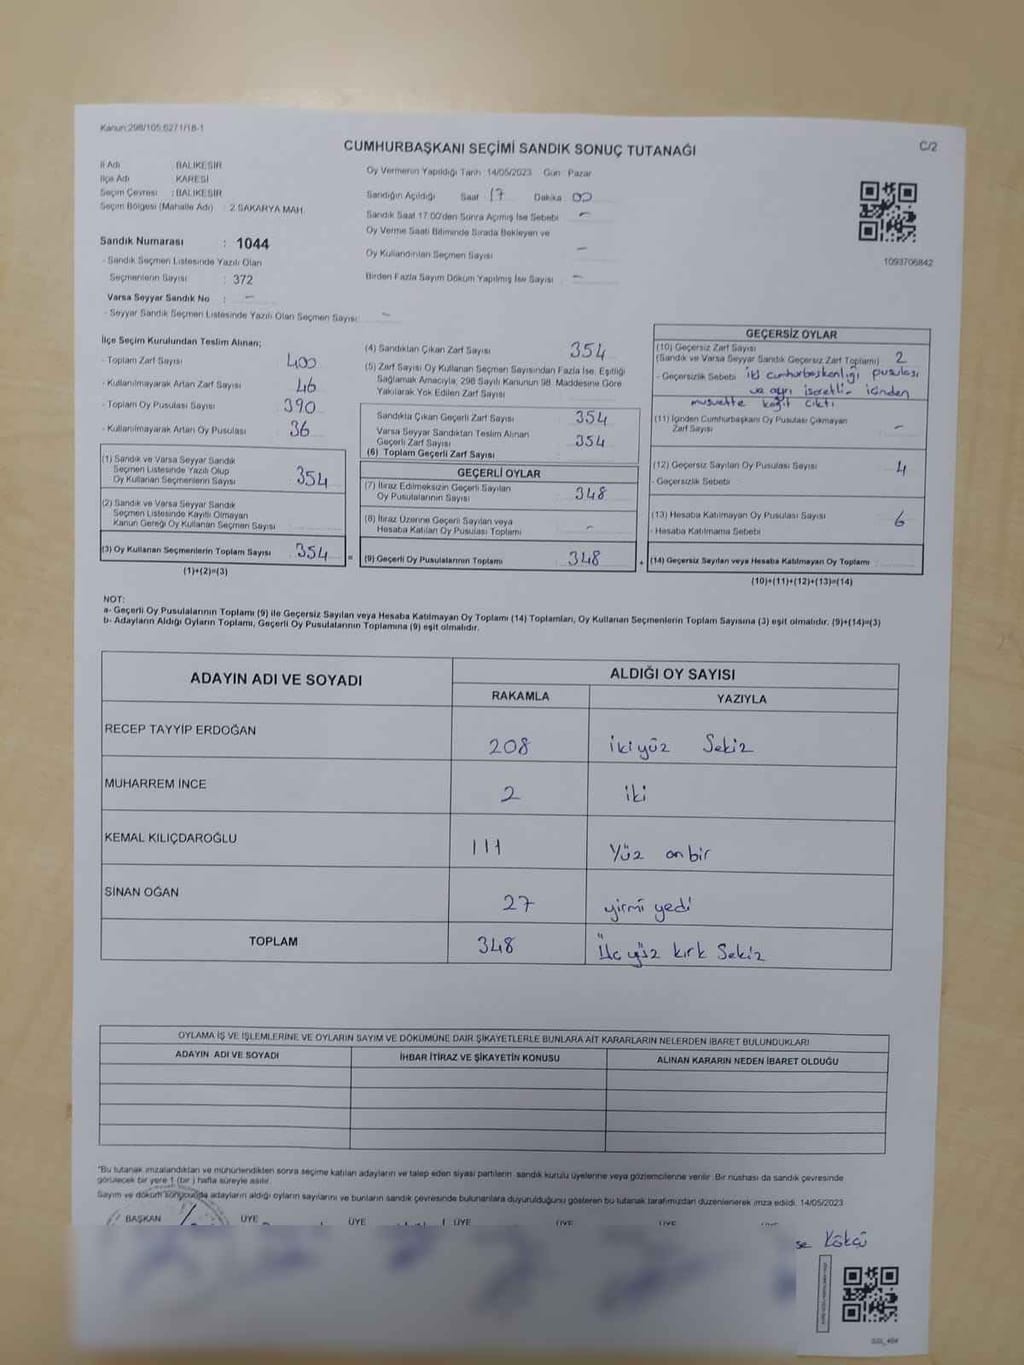 Kanun:298/105,6271/18-1
C/2
CUMHURBAŞKANI SEÇİMİ SANDIK SONUÇ TUTANAĞI
İl Adı : BALIKESİR
İlçe Adı : KARESİ
Seçim Çevresi : BALIKESİR
Seçim Bölgesi (Mahalle Adı) : 2.SAKARYA MAH.
Sandık Numarası : 1044
- Sandık Seçmen Listesinde Yazılı Olan
Seçmenlerin Sayısı : 372
Varsa Seyyar Sandık No : -
- Seyyar Sandık Seçmen Listesinde Yazılı Olan Seçmen Sayısı: -
Oy Vermenin Yapıldığı Tarih :14/05/2023 Gün: Pazar
Sandığın Açıldığı Saat 17 Dakika 00
Sandık Saat 17:00'den Sonra Açılmış İse Sebebi -
Oy Verme Saati Bitiminde Sırada Bekleyen ve
Oy Kullandırılan Seçmen Sayısı -
Birden Fazla Sayım Döküm Yapılmış İse Sayısı : -
1093706842
İlçe Seçim Kurulundan Teslim Alınan;
- Toplam Zarf Sayısı 400
- Kullanılmayarak Artan Zarf Sayısı 46
- Toplam Oy Pusulası Sayısı 390
- Kullanılmayarak Artan Oy Pusulası 36
(1) Sandık ve Varsa Seyyar Sandık
Seçmen Listesinde Yazılı Olup
Oy Kullanan Seçmenlerin Sayısı 354
(2) Sandık ve Varsa Seyyar Sandık
Seçmen Listesinde Kayıtlı Olmayan
Kanun Gereği Oy Kullanan Seçmen Sayısı
(3) Oy Kullanan Seçmenlerin Toplam Sayısı 354 =
(1)+(2)=(3)
(4) Sandıktan Çıkan Zarf Sayısı 354
(5) Zarf Sayısı Oy Kullanan Seçmen Sayısından Fazla İse, Eşitliği
Sağlamak Amacıyla, 298 Sayılı Kanunun 98. Maddesine Göre
Yakılarak Yok Edilen Zarf Sayısı
Sandıkta Çıkan Geçerli Zarf Sayısı 354
Varsa Seyyar Sandıktan Teslim Alınan
Geçerli Zarf Sayısı 354
(6) Toplam Geçerli Zarf Sayısı
GEÇERLİ OYLAR
(7) İtiraz Edilmeksizin Geçerli Sayılan
Oy Pusulalarının Sayısı 348
(8) İtiraz Üzerine Geçerli Sayılan veya
Hesaba Katılan Oy Pusulası Toplamı -
(9) Geçerli Oy Pusulalarının Toplamı 348 +
GEÇERSİZ OYLAR
(10) Geçersiz Zarf Sayısı
(Sandık ve Varsa Seyyar Sandık Geçersiz Zarf Toplamı) 2
- Geçersizlik Sebebi iki cumhurbaşkanlığı pusulası
ve ayrı içinden
kağıt çıktı
(11) İçinden Cumhurbaşkanı Oy Pusulası Çıkmayan
Zarf Sayısı -
(12) Geçersiz Sayılan Oy Pusulası Sayısı 4
- Geçersizlik Sebebi
(13) Hesaba Katılmayan Oy Pusulası Sayısı 6
- Hesaba Katılmama Sebebi
(14) Geçersiz Sayılan veya Hesaba Katılmayan Oy Toplamı
(10)+(11)+(12)+(13)=(14)
NOT:
a- Geçerli Oy Pusulalarının Toplamı (9) ile Geçersiz Sayılan veya Hesaba Katılmayan Oy Toplamı (14) Toplamları, Oy Kullanan Seçmenlerin Toplam Sayısına (3) eşit olmalıdır. (9)+(14)=(3)
b- Adayların Aldığı Oyların Toplamı, Geçerli Oy Pusulalarının Toplamına (9) eşit olmalıdır.
ADAYIN ADI VE SOYADI
ALDIĞI OY SAYISI
RAKAMLA YAZIYLA
RECEP TAYYİP ERDOĞAN 208 ikiyüz Sekiz
MUHARREM İNCE 2 iki
KEMAL KILIÇDAROĞLU 111 Yüz onbir
SİNAN OĞAN 27 yirmi yedi
TOPLAM 348 Üç yüz kırk Sekiz
OYLAMA İŞ VE İŞLEMLERİNE VE OYLARIN SAYIM VE DÖKÜMÜNE DAİR ŞİKAYETLERLE BUNLARA AİT KARARLARIN NELERDEN İBARET BULUNDUKLARI
ADAYIN ADI VE SOYADI İHBAR İTİRAZ VE ŞİKAYETİN KONUSU ALINAN KARARIN NEDEN İBARET OLDUĞU
*Bu tutanak imzalandıktan ve mühürlendikten sonra seçime katılan adayların ve talep eden siyasi partilerin, sandık kurulu üyelerine veya gözlemcilerine verilir. Bir nüshası da sandık çevresinde
görülecek bir yere 1 (bir ) hafta süreyle asılır.
Sayım ve döküm sonucunda adayların aldığı oyların sayılarını ve bunların sandık çevresinde bulunanlara duyurulduğunu gösteren bu tutanak tarafımızdan düzenlenerek imza edildi. 14/05/2023
BAŞKAN ÜYE ÜYE ÜYE ÜYE ÜYE
Kökçü